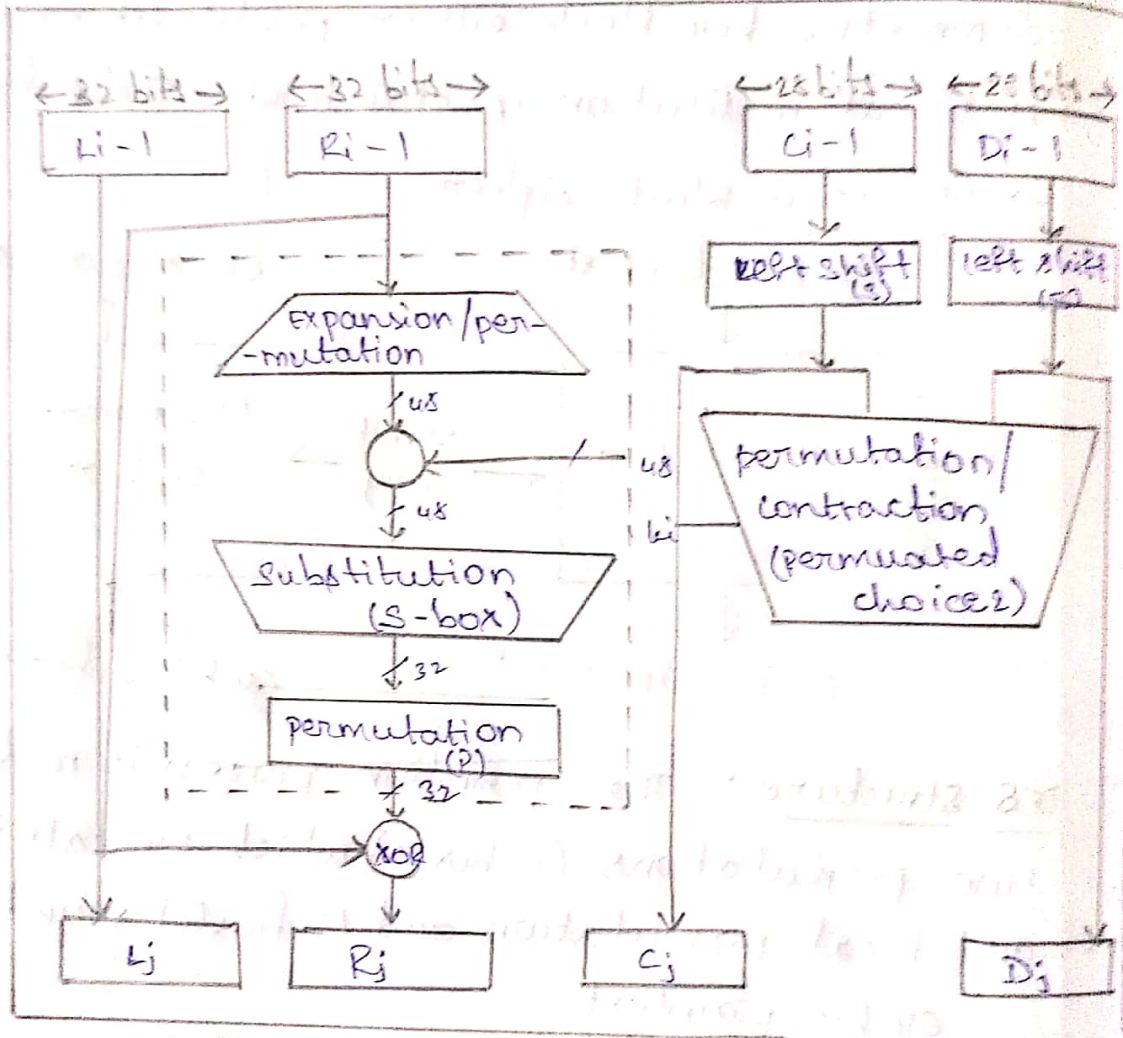 ←32 bits→ ←32 bits→ ←28 bits→ ←28 bits→
Li-1 Ri-1 Ci-1 Di-1
Left shift
(s)
left shift
Expansion/per-
-mutation
48
48
ki
48
permutation/
contraction
(permuated
choice2)
Substitution
(S-box)
32
permutation
(P)
32
XOR
Lj Rj Cj Dj
structure